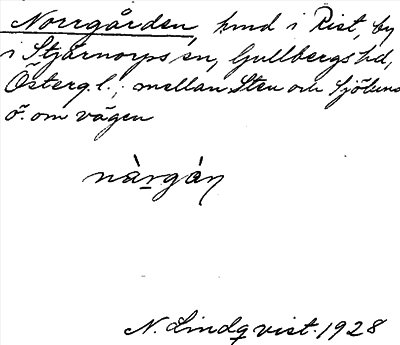 Norrgården, hmd i Rist, by
i Stjärnorps sn, Gullbergs hd,
Österg. l.; mellan Sten och Sjölund
ö. om vägen
nàrgán
N. Lindqvist. 1928